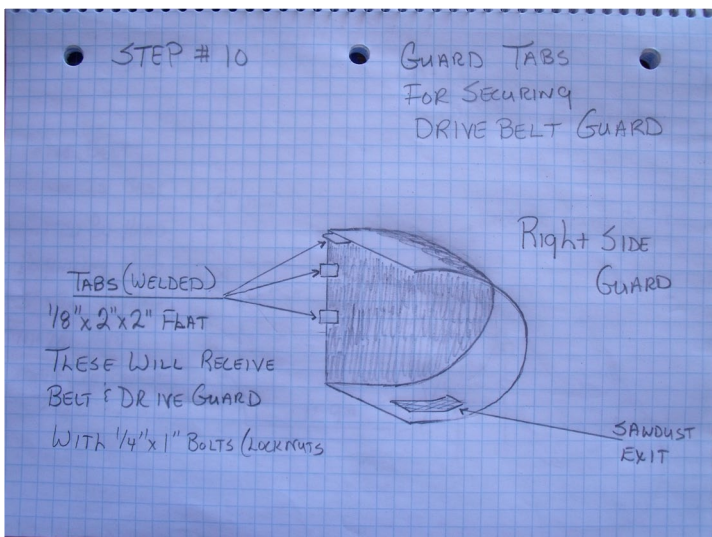 STEP # 10
GUARD TABS
FOR SECURING
DRIVE BELT GUARD
Right SIDE
GUARD
TABS (WELDED)
1/8" x 2" x 2" FLAT
THESE WILL RECEIVE
BELT & DRIVE GUARD
WITH 1/4" x 1" BOLTS (LOCKNUTS
SAWDUST
EXIT